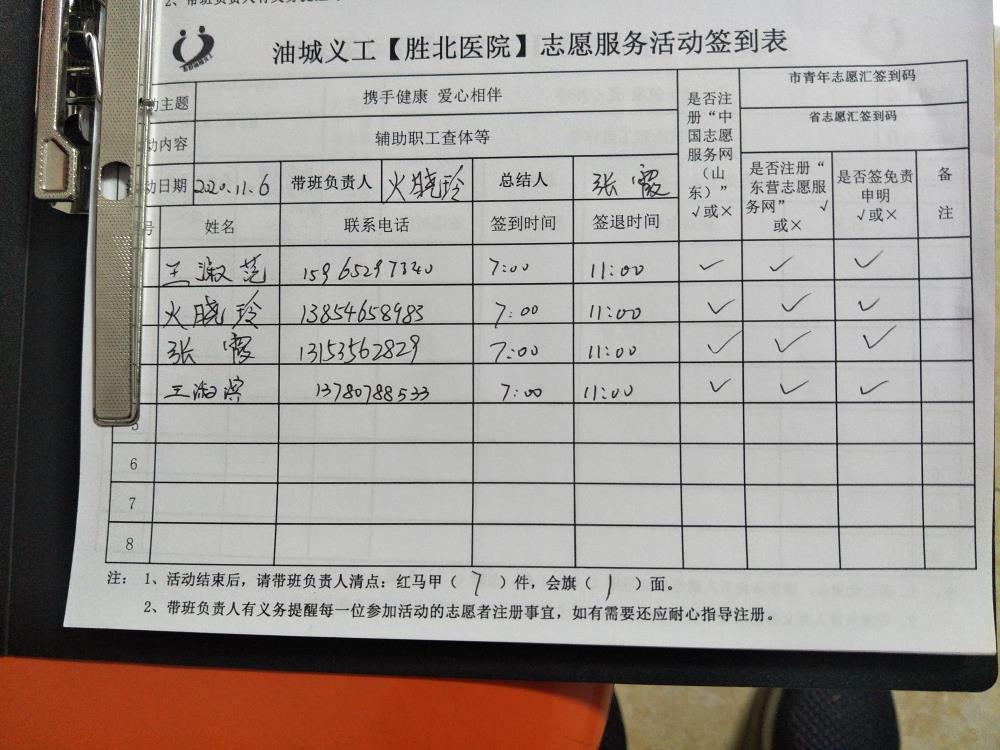 2、带班负责人有义务提醒
油城义工【胜北医院】志愿服务活动签到表
动主题 携手健康 爱心相伴 是否注册“中国志愿服务网（山东）”√或× 市青年志愿汇签到码
省志愿汇签到码
动内容 辅助职工查体等
动日期 2020.11.6 带班负责人 火晓玲 总结人 张霞 是否注册“东营志愿服务网” √或× 是否签免责申明 √或× 备注
号 姓名 联系电话 签到时间 签退时间
王淑范 15965297340 7:00 11:00 ✓ ✓ ✓
火晓玲 13854658983 7:00 11:00 ✓ ✓ ✓
张霞 13153562829 7:00 11:00 ✓ ✓ ✓
王海滨 13780788533 7:00 11:00 ✓ ✓ ✓
5
6
7
8
注： 1、活动结束后，请带班负责人清点：红马甲（ 7 ）件，会旗（ 1 ）面。
2、带班负责人有义务提醒每一位参加活动的志愿者注册事宜，如有需要还应耐心指导注册。